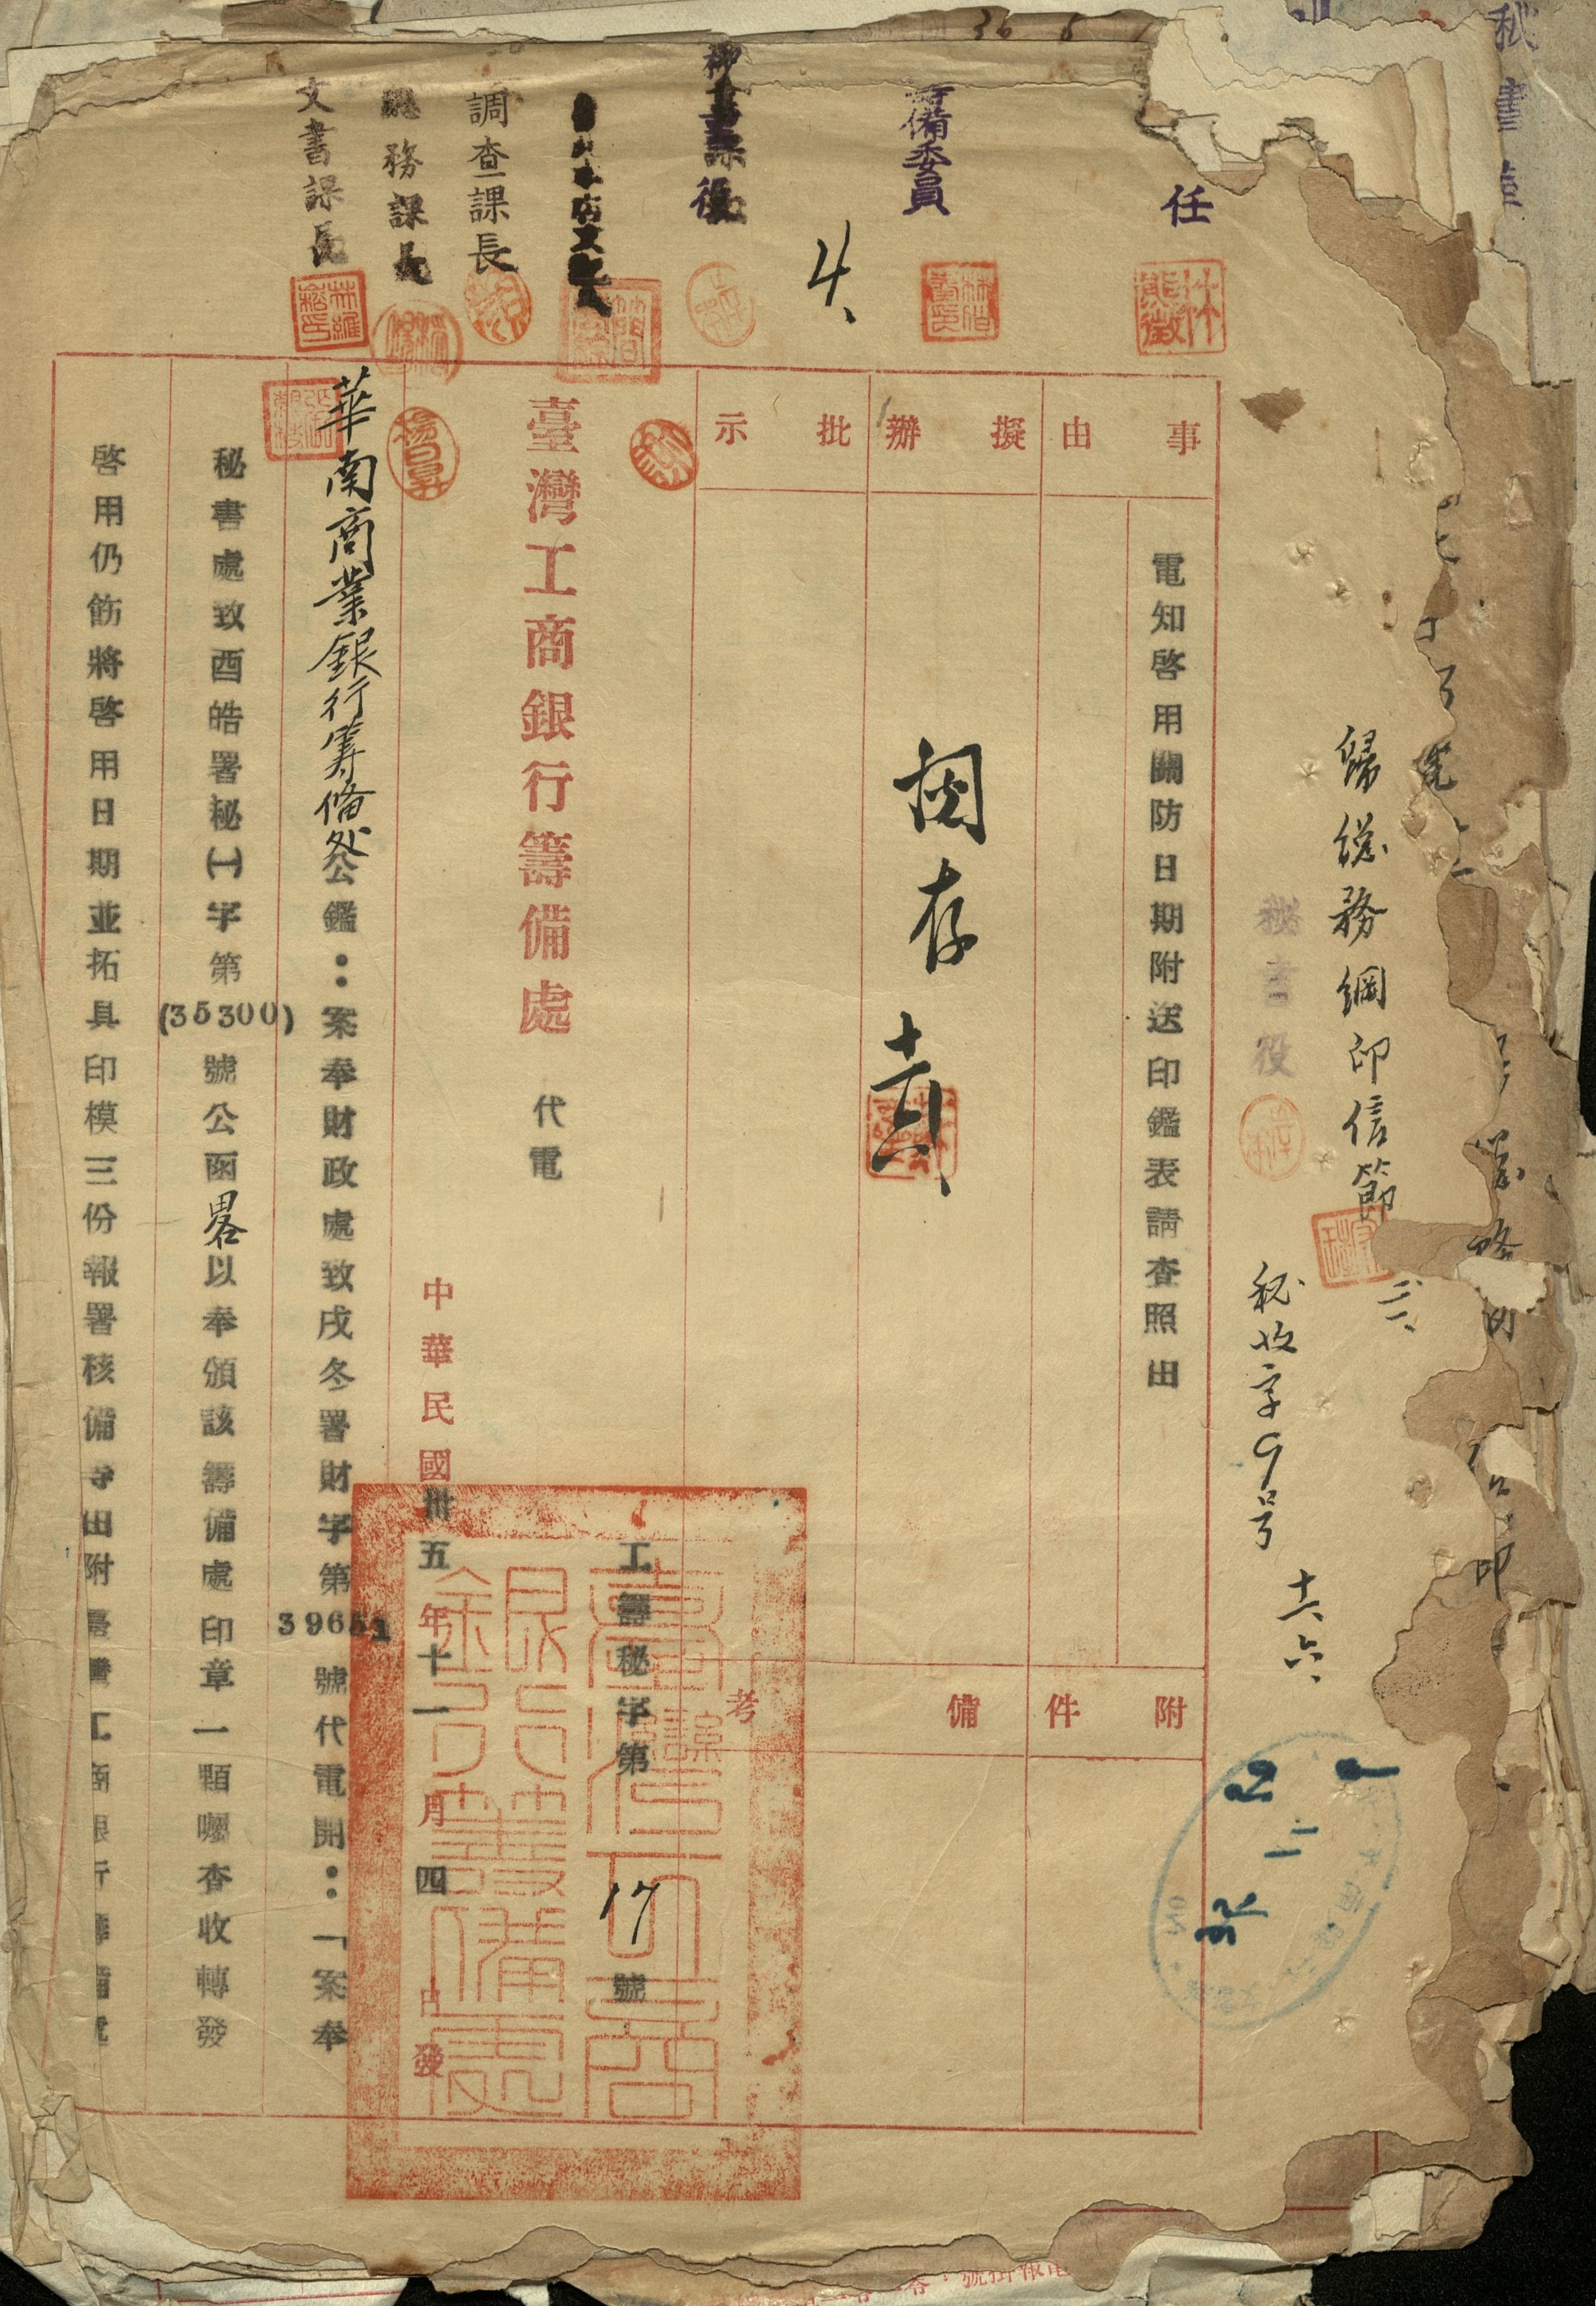 任
籌備委員
調查課長
務課長
文書課長
林熊徵
楊日昇
歸總務綱印信節
秘書役
秘收字9号
十一六
事由
擬辦
批示
電知啓用關防日期附送印鑑表請查照由
存
附件
備考
臺灣工商銀行籌備處
代電
工籌秘字第17號
中華民國卅五年十一月四日發
臺灣工商銀行籌備處
華南商業銀行籌備処公鑑：案奉財政處致戌冬署財字第39651號代電開：「案奉
秘書處致酉皓署秘(一)字第(35300)號公函畧以奉頒該籌備處印章一顆囑查收轉發
啓用仍飭將啓用日期並拓具印模三份報署核備等由附臺灣工商銀行籌備處